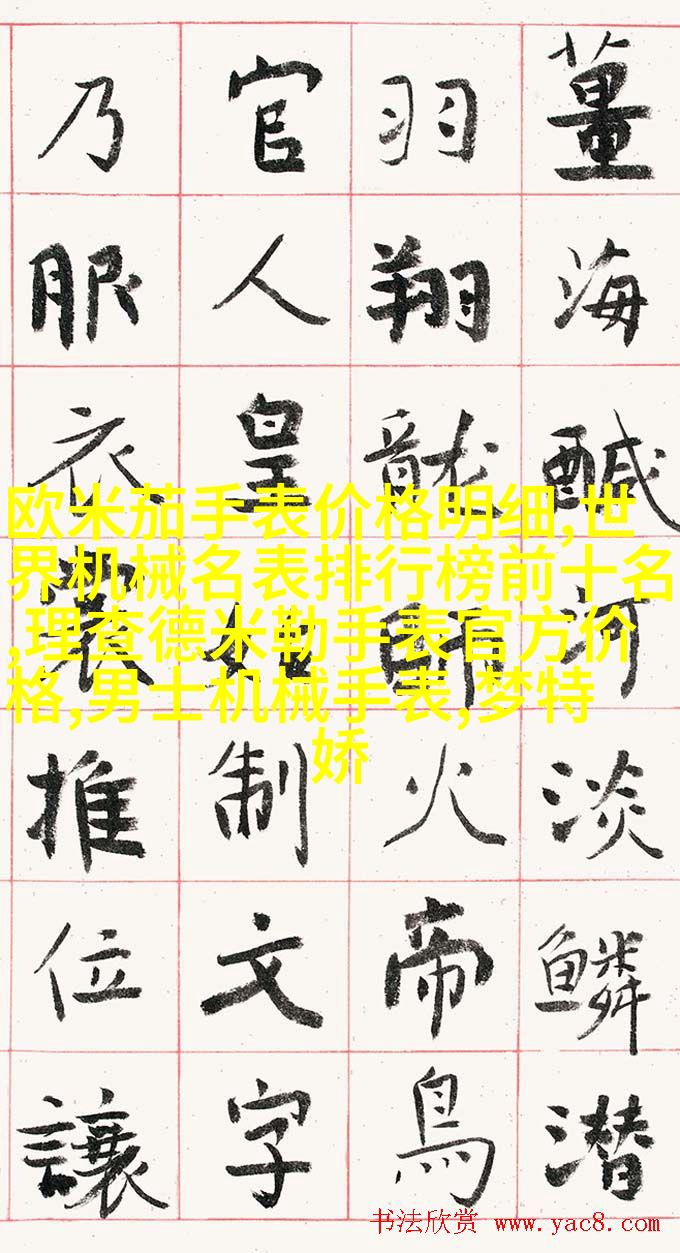 薑海醎河淡鱗潜
羽翔龍師火帝鳥
官人皇始制文字
乃服衣裳推位讓
欧米茄手表价格明细,世
界机械名表排行榜前十名
,理查德米勒手表官方价
格,男士机械手表,梦特
娇
书法欣赏 www.yac8.com